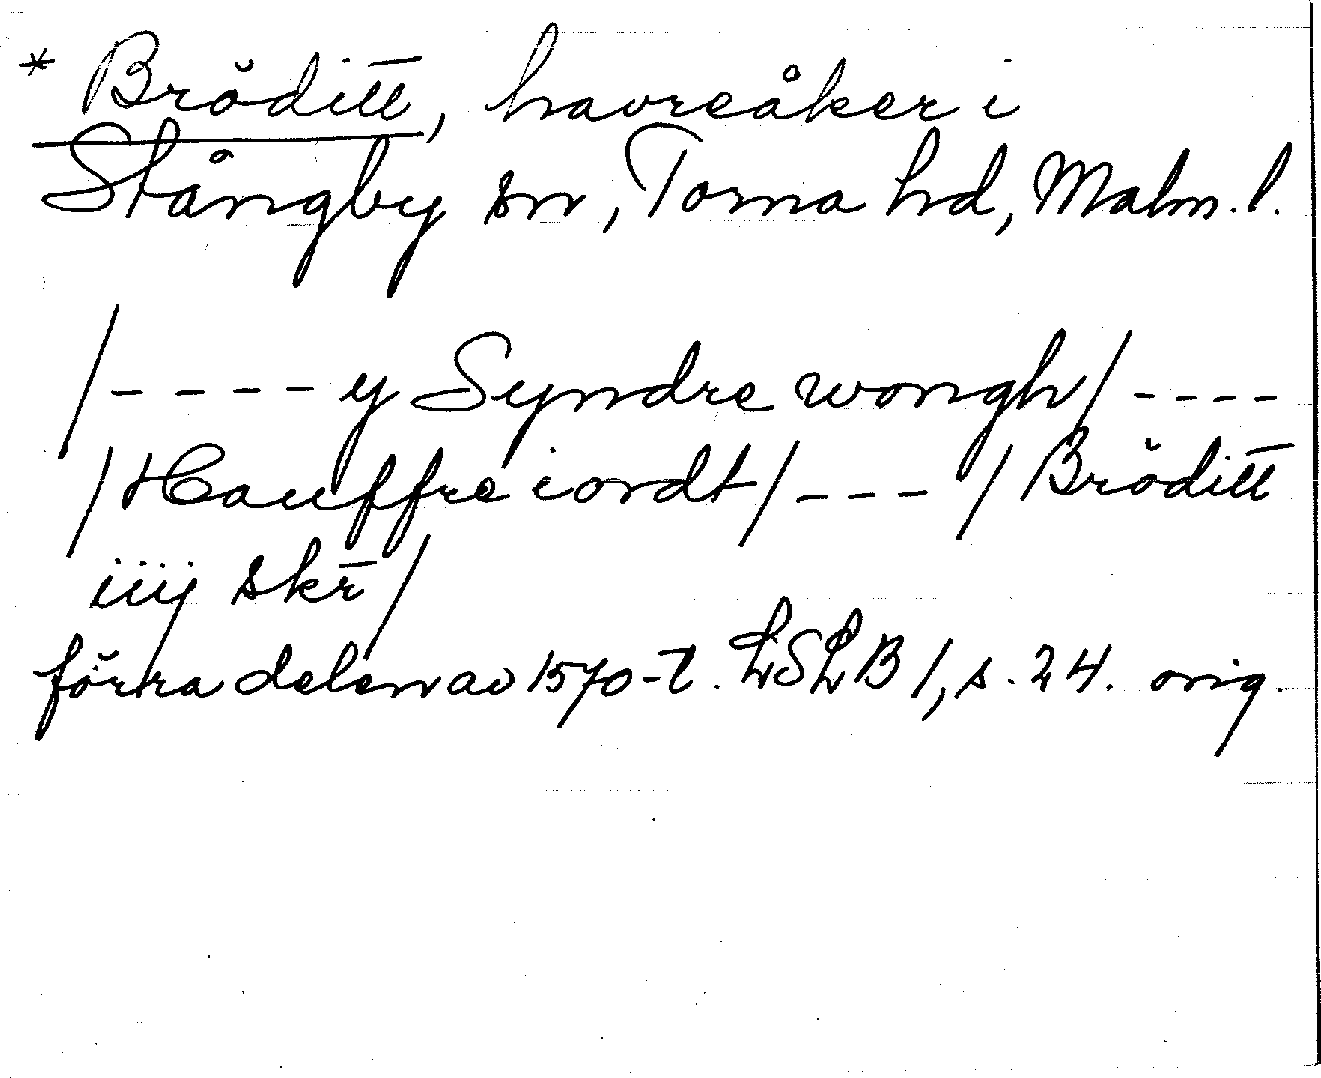 * Brŏditt̅, havreåker i
Stångby sn, Torna hd, Malm. l.
/---- y Syndre wongh/ ----
/Hauffre iordt/ --- / Brŏditt̅
iiij skr̅ /
förra delen av 1570-t. LSLB 1, s. 24. orig.